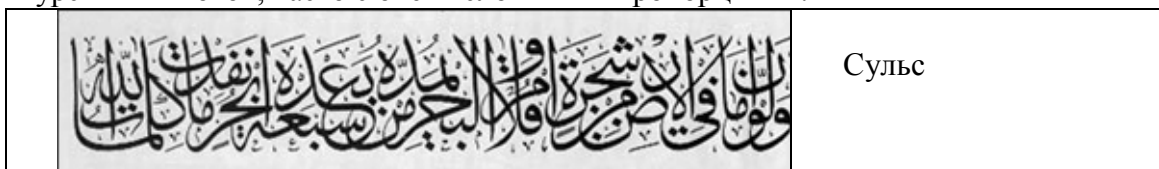 ولو أنما في الأرض من شجرة أقلام والبحر يمده من بعده سبعة أبحر ما نفدت كلمات الله
Сульс